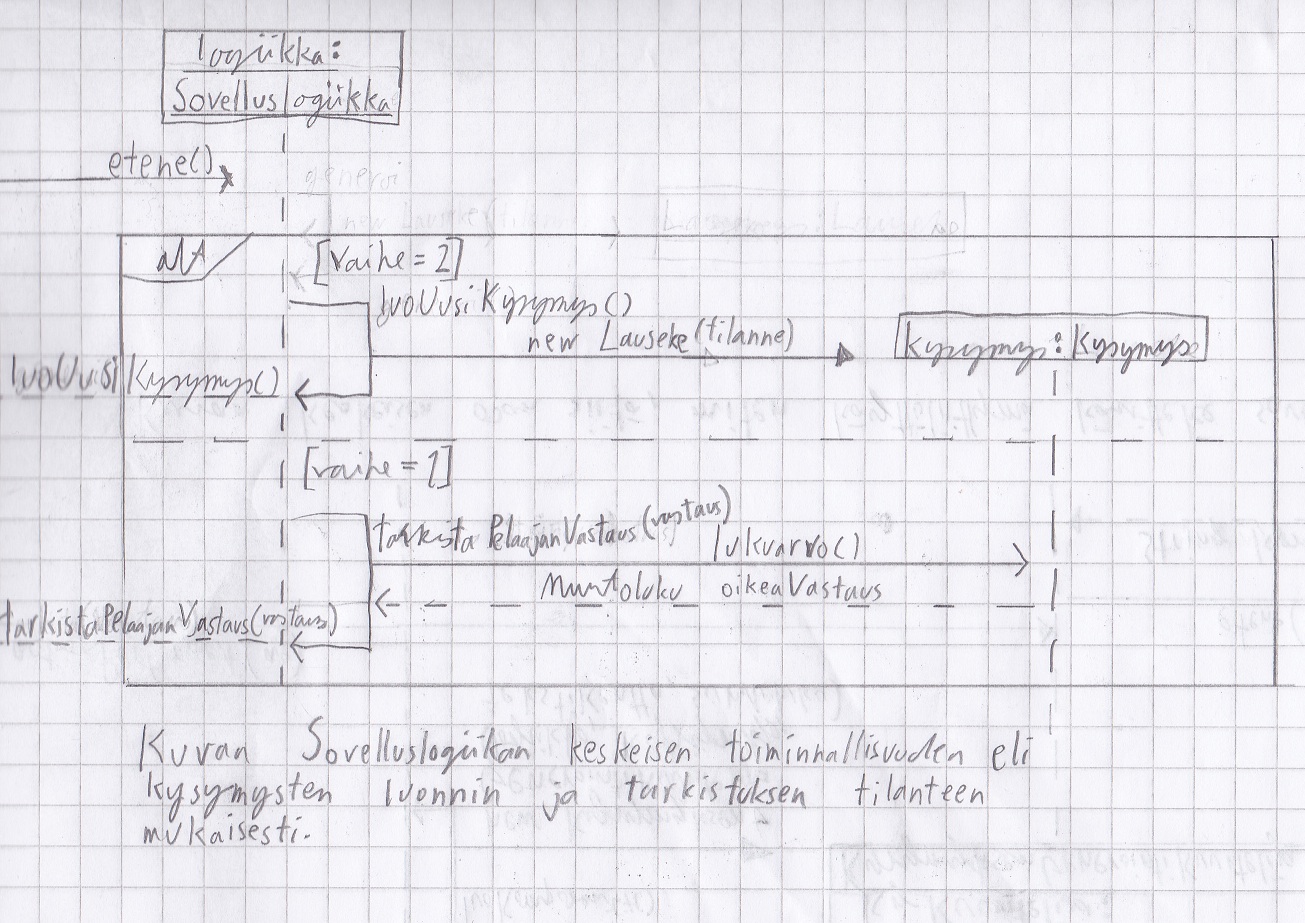 logiikka:
Sovelluslogiikka
etene()
generoi
alt
[vaihe = 2]
luoUusiKysymys()
new Lauseke(tilanne)
kysymys:Kysymys
luoUusiKysymys()
[vaihe = 1]
tarkistaPelaajanVastaus(vastaus)
lukuarvo()
Murtoluku oikeaVastaus
tarkistaPelaajanVastaus(vastaus)
Kuvan Sovelluslogiikan keskeisen toiminnallisuuden eli
kysymysten luonnin ja tarkistuksen tilanteen
mukaisesti.